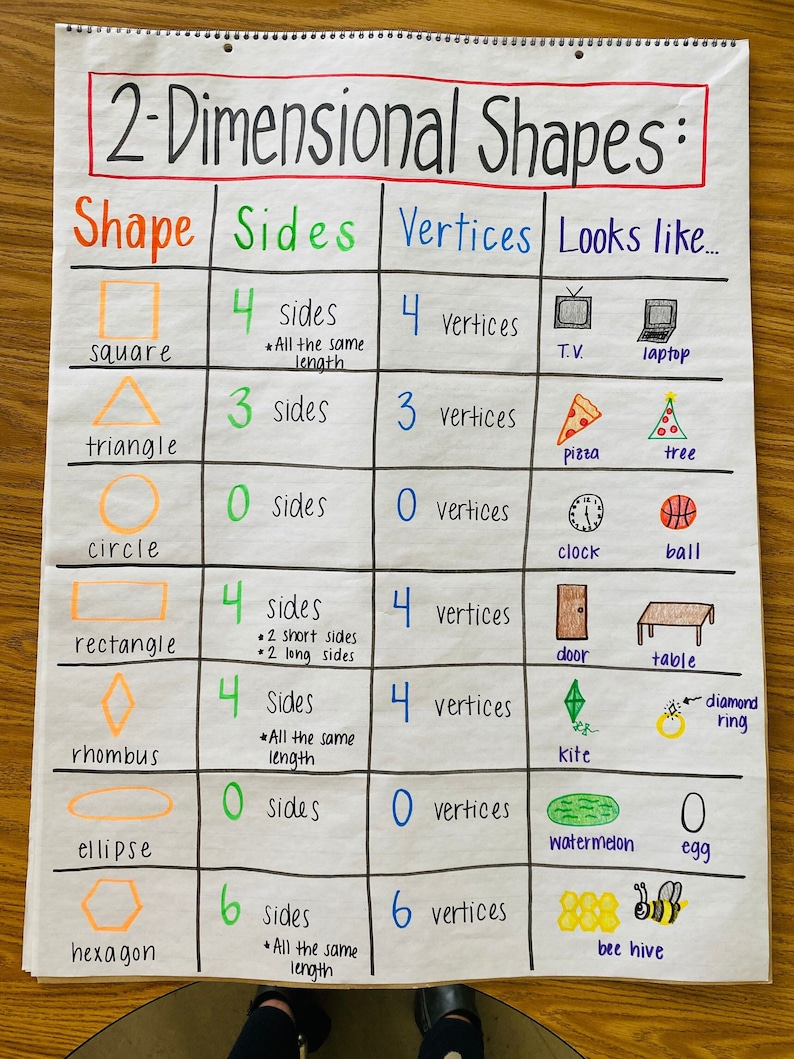 2-Dimensional Shapes:
Shape Sides Vertices Looks like...
square
4 sides
*All the same
length
4 vertices
T.V. laptop
triangle
3 sides
3 vertices
pizza tree
circle
0 sides
0 vertices
clock ball
rectangle
4 sides
*2 short sides
*2 long sides
4 vertices
door table
rhombus
4 sides
*All the same
length
4 vertices
kite
diamond
ring
ellipse
0 sides
0 vertices
watermelon egg
hexagon
6 sides
*All the same
length
6 vertices
bee hive